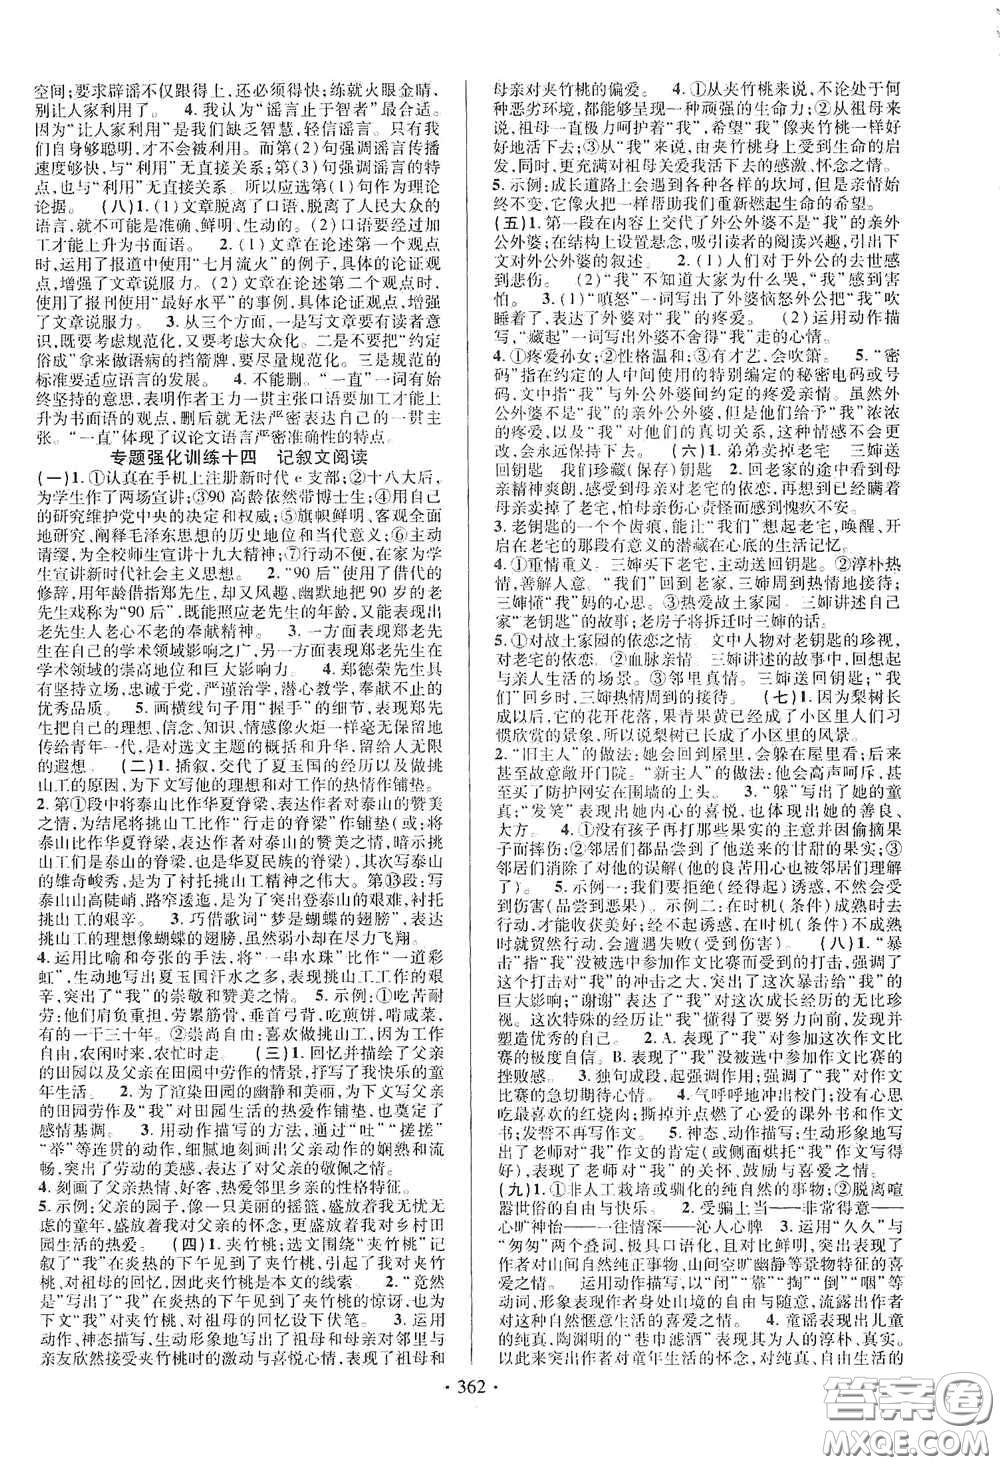 空间;要求辟谣不仅跟得上,还必须得快;练就火眼金睛,
别让人家利用了。 4.我认为“谣言止于智者”最合适。
因为“让人家利用”是我们缺乏智慧,轻信谣言。只有我们
自身足够聪明,才不会被利用。而第(2)句强调谣言传播
速度够快,与“利用”无直接关系;第(3)句强调谣言的特
点,也与“利用”无直接关系。所以应选第(1)句作为理论
论据。 (八)1.(1)文章脱离了口语,脱离了人民大众的
语言,就不可能是准确、鲜明、生动的。(2)口语要经过加
工才能上升为书面语。 2.(1)文章在论述第一个观点
时,运用了报道中使用“七月流火”的例子,具体的论证观
点,增强了文章说服力。(2)文章在论述第二个观点时,使
用了报刊使用“最好水平”的事例,具体的论证观点,增强
了文章说服力。 3.从三个方面,一是写文章要有读者意
识,既要考虑规范化,又要考虑大众化。二是不要把“约定
俗成”拿来做语病的挡箭牌,要尽量规范化。三是规范的
标准要适应语言的发展。 4.不能删。“一直”一词有始
终坚持的意思,表明作者王力一贯主张口语要加工才能上
升为书面语的观点,删后就无法严密表达自己的一贯主
张。“一直”体现了议论文语言严密准确性的特点。
专题强化训练十四 记叙文阅读
(一)1.①认真在手机上注册新时代e支部;②十八大后,
为学生作了两场宣讲;③90高龄依然带博士生;④用自己
的研究维护党中央的决定和权威;⑤旗帜鲜明、客观全面
地研究、阐释毛泽东思想的历史地位和当代意义;⑥主动
请缨,为全校师生宣讲十九大精神;⑦行动不便,在家为学
生宣讲新时代社会主义思想。 2.“90后”运用了借代的
修辞,用年龄借指郑先生,又风趣、幽默地把90岁的老
先生戏称为“90后”,既能照应老先生的年龄,又能表现出
老先生人老心不老的奉献精神。 3.一方面表现郑老先
生在自己的学术领域影响之广,另一方面表现郑老先生在
学术领域的崇高地位和巨大影响力。 4.郑德荣先生具
有坚持立场,忠诚于党,严谨治学,潜心教学,奉献不止的
优秀品质。 5.画横线句子用“握手”的细节,表现郑先
生把自己的理想、信念、知识、情感像火炬一样毫无保留地
传给青年一代,是对选文主题的概括和升华,给人无限
的遐想。 (二)1.插叙,交代了夏玉国的经历以及做挑
山工的原因,为下文写他的理想和对工作的热情作铺垫。
2.第①段中将泰山比作华夏脊梁,表达作者对泰山的赞美
之情,为结尾将挑山工比作“行走的脊梁”作铺垫;(或者:
将泰山比作华夏脊梁,表达作者对泰山的赞美之情,暗示
挑山工们是泰山的脊梁,也是华夏民族的脊梁,其次写泰山
的雄奇峻秀,是为了衬托挑山工精神之伟大。第⑬段:写
泰山山高陡峭、路窄逶迤,是为了突出登泰山之艰难,衬托
挑山工的艰辛。 3.巧借歌词“梦是蝴蝶的翅膀”,表达
挑山工的理想像蝴蝶的翅膀,虽然弱小却在尽力飞翔。
4.运用比喻和夸张的手法,将“一串水珠”比作“一道彩
虹”,生动地写出夏玉国汗水之多,表现挑山工工作的艰
辛,突出了“我”的崇敬和赞美之情。 5.示例:①吃苦耐
劳:他们肩负重担,劳累筋骨,垂首弓背,吃煎饼,啃咸菜,
有的一干三十年。②崇尚自由:喜欢做挑山工,因为工作
自由,农闲时来,农忙时走。 (三)1.回忆并描绘了父亲
的田园以及父亲在田园中劳作的情景,抒写了我快乐的童
年生活。 2.为了渲染田园的幽静和美丽,为下文写父亲
的田园劳作及“我”对田园生活的热爱作铺垫,也奠定了
感情基调。 3.用动作描写的方法,通过“吐”“搓搓”
“举”等连贯的动作,细腻地刻画出父亲动作的娴熟和流
畅,突出了劳动的美感,表达了对父亲的敬佩之情。
4.刻画了父亲热情、好客、热爱邻里乡亲的性格特征。
5.示例:父亲的园子,像一只美丽的摇篮,盛放着我无忧无
虑的童年,盛放着我对父亲的怀念,更盛放着我对乡村田
园生活的热爱。 (四)1.夹竹桃;选文围绕“夹竹桃”记
叙了“我”在炎热的下午见到了夹竹桃,引起了我对祖母的回忆,因此夹竹桃是本文的线索。 2.“竟然
是”写出了“我”在炎热的下午见到了夹竹桃的惊讶,也为
下文“我”对夹竹桃、对祖母的回忆设下伏笔。 3.运用
动作、神态描写,生动形象地写出了祖母和母亲对邻里与
亲友欣然接受夹竹桃时的激动与喜悦心情,表现了祖母和
母亲对夹竹桃的偏爱。 4.①从夹竹桃来说,不论处于何
种恶劣环境,都能够展现一种顽强的生命力;②从祖母来
说,祖母一直极力呵护着“我”,希望“我”像夹竹桃一样好
好地活下去;③从“我”来说,由夹竹桃身上受到生命的启
发,同时,更充满对祖母关爱我活下去的感激、怀念之情。
5.示例:成长道路上会遇到各种各样的坎坷,但是亲情始
终不变,它像火把一样帮助我们重新燃起生命的希望。
(五)1.第一段在内容上交代了外公外婆不是“我”的亲外
公外婆,在结构上设置悬念,吸引读者的阅读兴趣,引出下
文对外公外婆的叙述。 2.(1)人们对于外公的去世感
到悲伤。 (2)“我”不知道大家为什么哭,“我”感到害
怕。 3.(1)“嗔怒”一词写出了外婆恼怒外公把“我”吹
睡着了,表达了外婆对“我”的疼爱。(2)运用动作描写,
“藏起”一词写出外婆不舍得“我”走的心情。
4.①疼爱孙女;②性格温和;③有才艺,会吹箫。 5.“密
码”指在约定的人中间使用的特别编定的秘密电码或号
码,文中指“我”与外公外婆间约定的疼爱亲情。虽然外
公外婆不是“我”的亲外公外婆,但是他们给予“我”浓浓
的疼爱,“我”和他们的真切关系,这种情感不会因此改
变,会永远保持下去。 (六)1.弟弟卖掉老宅 三婶送
回钥匙 我珍藏(保存)钥匙 2.回老宅居住的母
亲精神爽朗,感受到母亲对老宅的依恋,
母亲卖掉了老宅,怕母亲伤心责怪而感到愧疚不安。
3.老钥匙的一个个齿痕,能让“我们”想起老宅,唤醒、开
启在老宅的那段有意义的潜藏在心底的生活记忆。
4.①重情重义 三婶买下老宅,主动送回钥匙。②淳朴热
情,善解人意。“我们”回到老家,三婶周到热情地接待;
三婶懂“我”妈的心思。③热爱故土家园 三婶讲述自己
家“老钥匙”的故事;老房子将拆迁时三婶的话。
5.①对故土家园的依恋之情 文中人物对老钥匙的珍视,
对老宅的依恋。②血脉亲情 三婶讲述的故事中,回想起
与亲人生活的场景。③邻里真情。三婶送回钥匙;“我
们”回乡时,三婶热情周到的接待。 (七)1.因为梨树长
成以后,它的花开花落,果青果黄成了小区里人们习
惯欣赏的景观,所以说梨树已长成了小区里的风景。
2.“旧主人”的做法:她会回到屋里,会躲在屋里看;后来
甚至故意敞开门院。“新主人”的做法:他会高声呵斥,甚
至买了防护网安在围墙的上头。 3.“躲”写出了她的童
真;“发笑”表现出她内心的喜悦,也体现出她的善良、
大方。 4.①没有孩子再打那些果实的主意并因偷摘果
子而摔伤;②邻居们都品尝到了他送来的甘甜的果实;③
邻居们消除了对他的误解(他的良苦用心也被邻居们理解
了)。 5.示例一:我们要拒绝(经得起)诱惑,不然会
受到伤害(品尝到恶果)。示例二:在时机(条件)成熟时去
行动,才能收获美好;经不起诱惑,在时机(条件)不成熟
时就贸然行动,会遭遇失败(受到伤害)。 (八)1.“暴
击”指“我”没被选中参加作文比赛受到的打击,强调了
这个打击对“我”的冲击之大,突出了这次暴击给“我”的
巨大影响;“谢谢”表达了“我”对这次成长经历的无比珍
视。这次特殊的经历让“我”懂得了要努力向前,发现并
塑造优秀的自己。 2.A.表现了“我”对参加这次作文比
赛的极度自信。B.表现了“我”没被选中参加作文比赛的
挫败感。 3.独句成段,起强调作用;强调了“我”对作文
比赛的急切期待心情。 4.气呼呼地冲出校门;没有心思
吃最喜欢的红烧肉;撕掉并烧了心爱的课外书和作文
书;发誓不再写作文。 5.神态、动作描写;生动形象地写
出了老师对“我”作文的肯定(或侧面烘托“我”作文写得
好),表现了老师对“我”的关怀、鼓励与喜爱之情。
(九)1.①非人工栽培或驯化的纯自然的事物;②脱离喧
嚣世俗的自由与快乐。 2.受骗上当——非常得意——
心旷神怡——一往情深——沁人心脾 3.运用“久久”与
“匆匆”两个叠词,极具口语化,且对比鲜明,突出表现了作
者对山间自然事物的纯真、山间空旷幽静等景物特征的喜
爱之情。 运用动作描写,以“闭”“靠”“掏”“倒”“咽”等动
词,形象表现作者身处山境的奇幻之感,流露出作者
对自然惬意生活的喜爱之情。 4.童谣表现出儿童
的纯真,陶渊明的“巷巾漉酒”表现其为人的淳朴、真实。
以此来突出作者对童年生活的怀念,对纯真、自由生活的
· 362 ·
答案圈
MXQE.COM